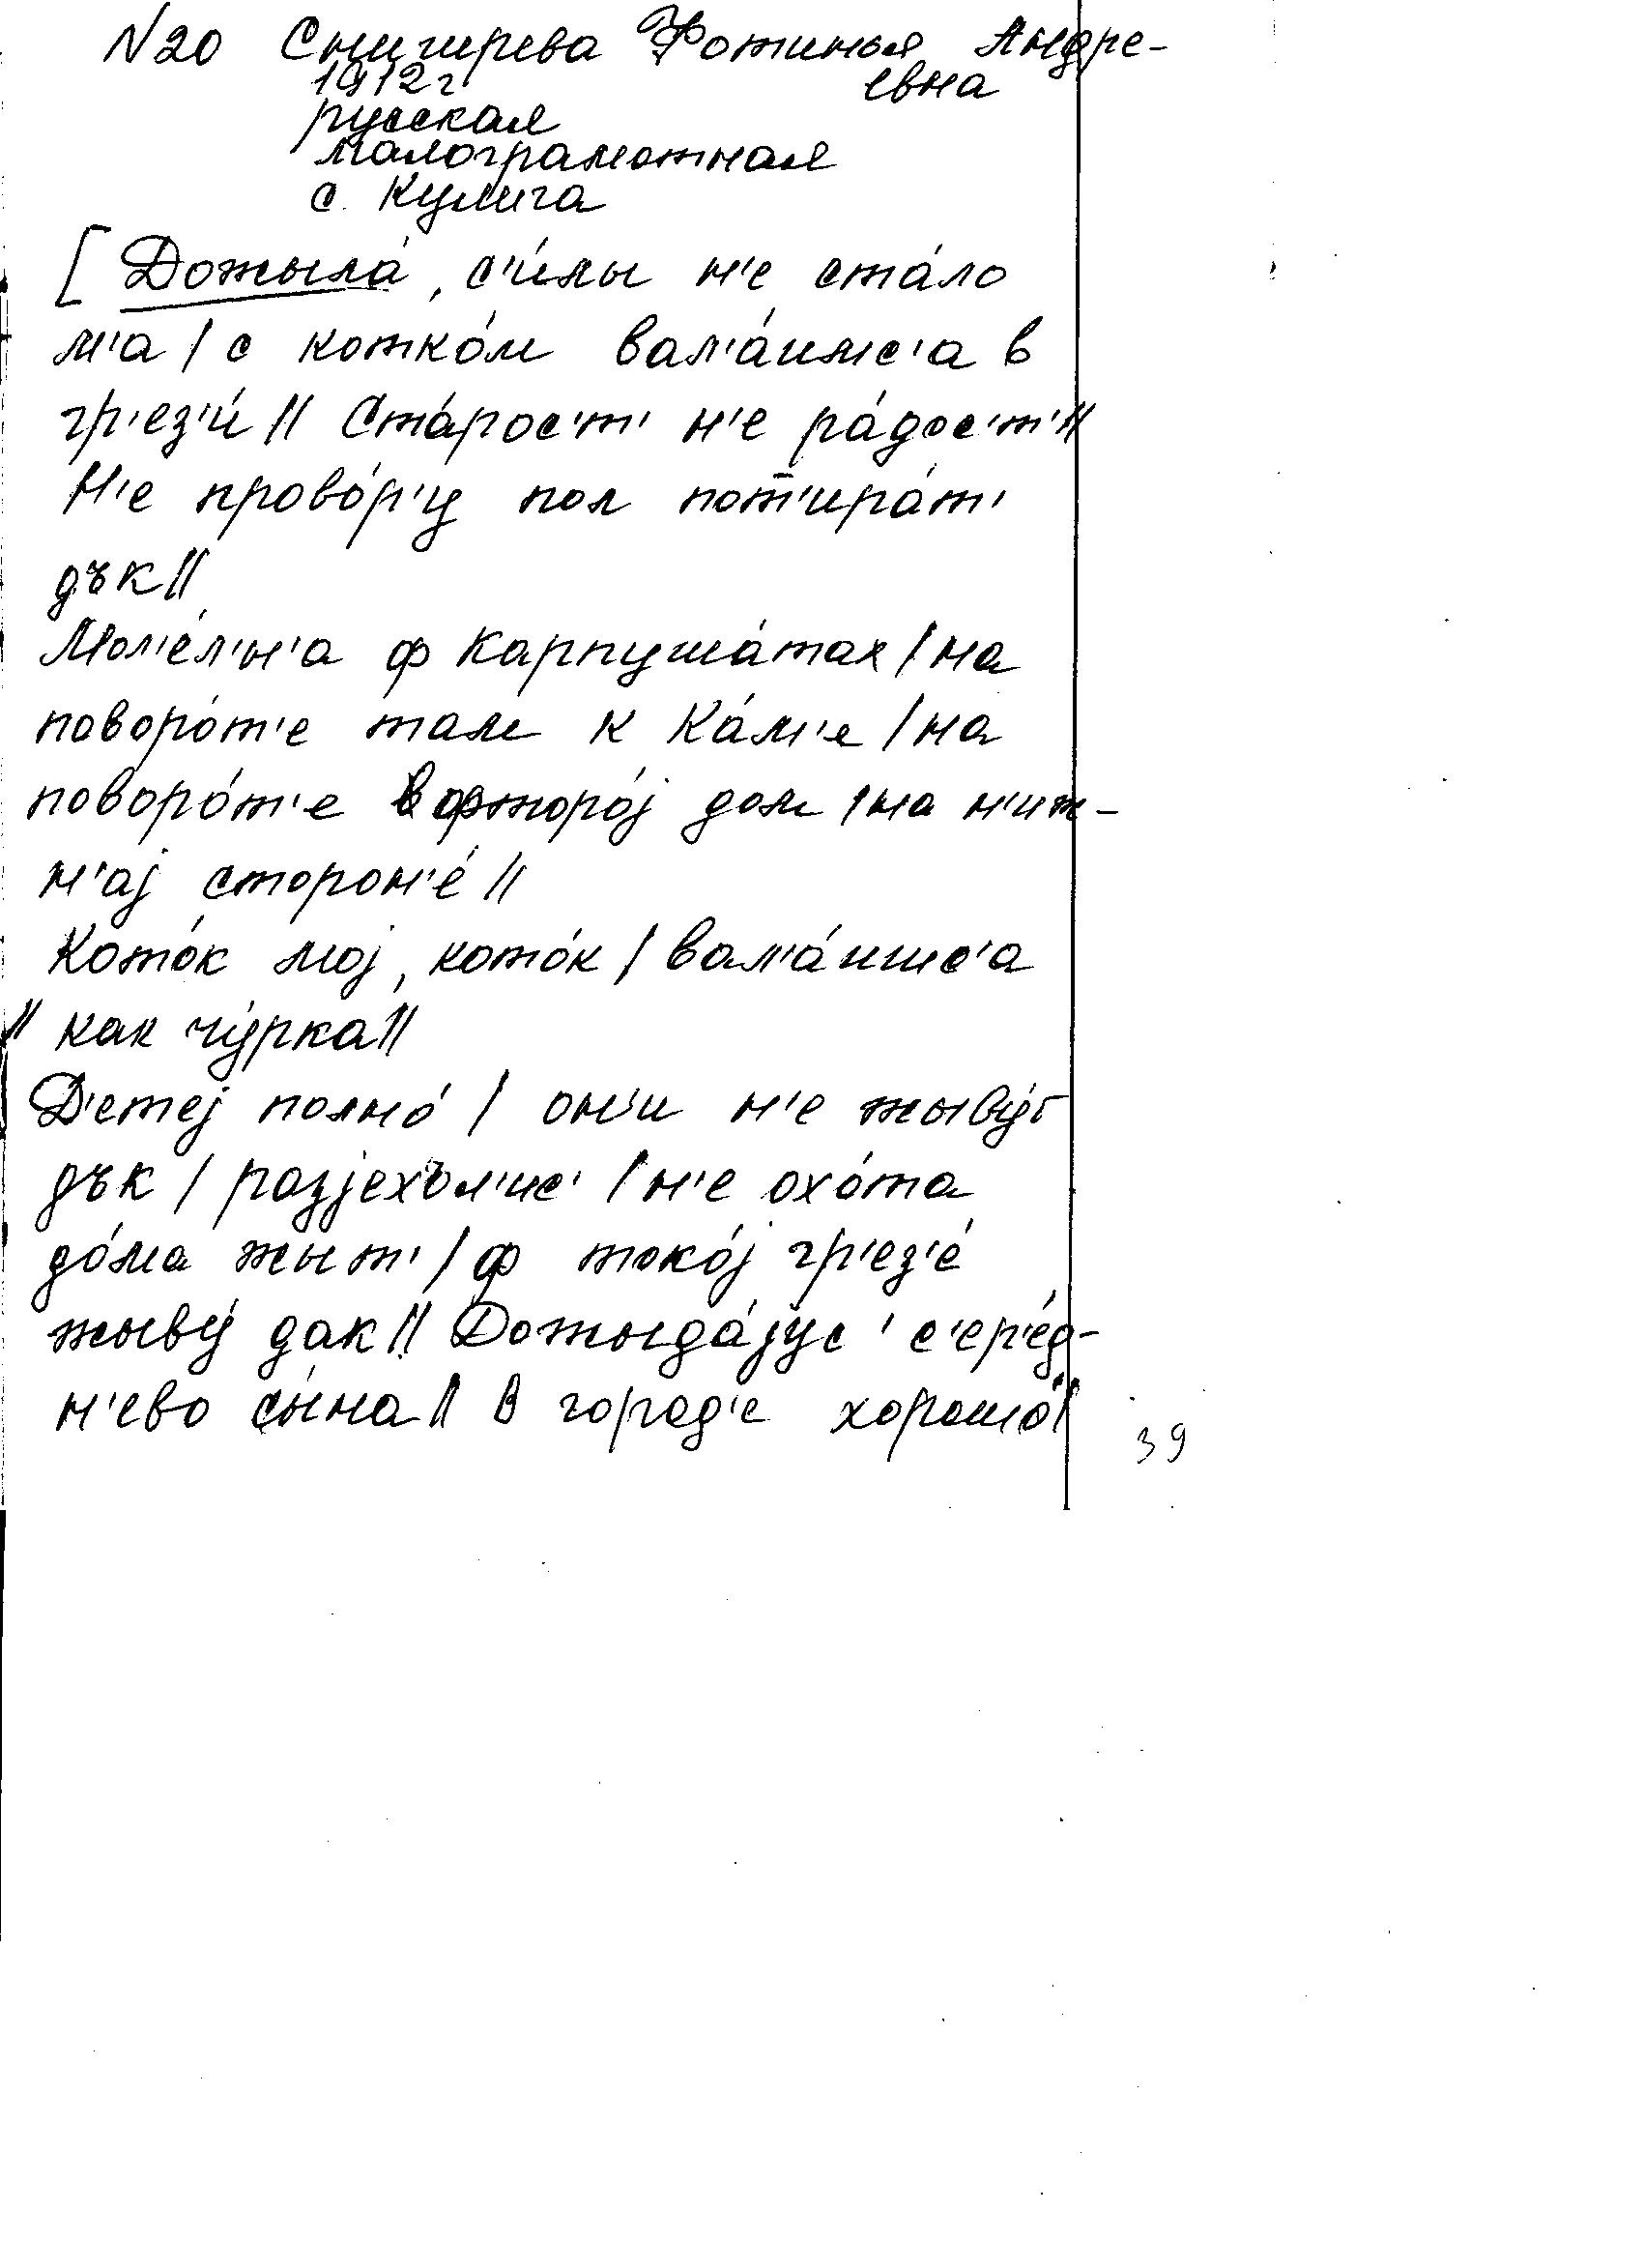 N20 Снигирева Фотинья Андре-
1912г евна
русская
малограмотная
с. Кулига
[ Дожыла́, с'и́лы н'е ста́ло
м'а / с котко́м вал'а́имс'а в
гр'ез'и́ // Ста́рос'т' н'е ра́дос'т' //
Н'е прово́р'у пол пот'ира́т'
дък //
Мол'е́л'н'а ф Карпуша́тах / на
поворо́т'е там к Ка́м'е / на
поворо́т'е фторо́j дом / на н'иж-
н'аj сторон'е́ //
Кото́к моj, кото́к / вал'а́ишс'а
// как чу́рка //
Д'етеj полно́ / он'и н'е жыву́т
дък / разjехъл'ис' / н'е охо́та
до́ма жыт' / ф токо́j гр'ез'е́
жыву́ дак // Дожыда́jус' с'ер'е́д-
н'ево сы́на // В город'е хорошо́ //
39